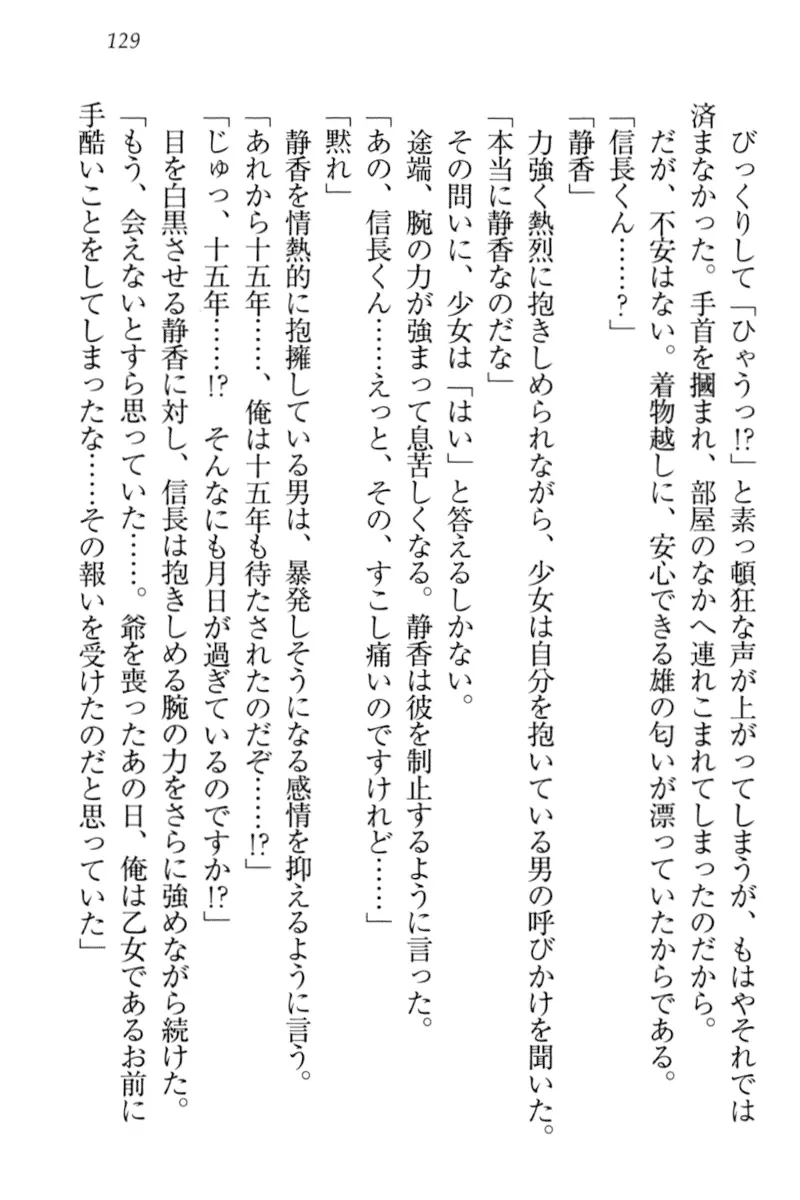 129
びっくりして「ひゃうっ!?」と素っ頓狂な声が上がってしまうが、もはやそれでは
済まなかった。手首を摑まれ、部屋のなかへ連れこまれてしまったのだから。
だが、不安はない。着物越しに、安心できる雄の匂いが漂っていたからである。
「信長くん……?」
「静香」
力強く熱烈に抱きしめられながら、少女は自分を抱いている男の呼びかけを聞いた。
「本当に静香なのだな」
その問いに、少女は「はい」と答えるしかない。
途端、腕の力が強まって息苦しくなる。静香は彼を制止するように言った。
「あの、信長くん……えっと、その、すこし痛いのですけれど……」
「黙れ」
静香を情熱的に抱擁している男は、暴発しそうになる感情を抑えるように言う。
「あれから十五年……、俺は十五年も待たされたのだぞ……!?」
「じゅっ、十五年……!?　そんなにも月日が過ぎているのですか!?」
目を白黒させる静香に対し、信長は抱きしめる腕の力をさらに強めながら続けた。
「もう、会えないとすら思っていた……。爺を喪ったあの日、俺は乙女であるお前に
手酷いことをしてしまったな……その報いを受けたのだと思っていた」